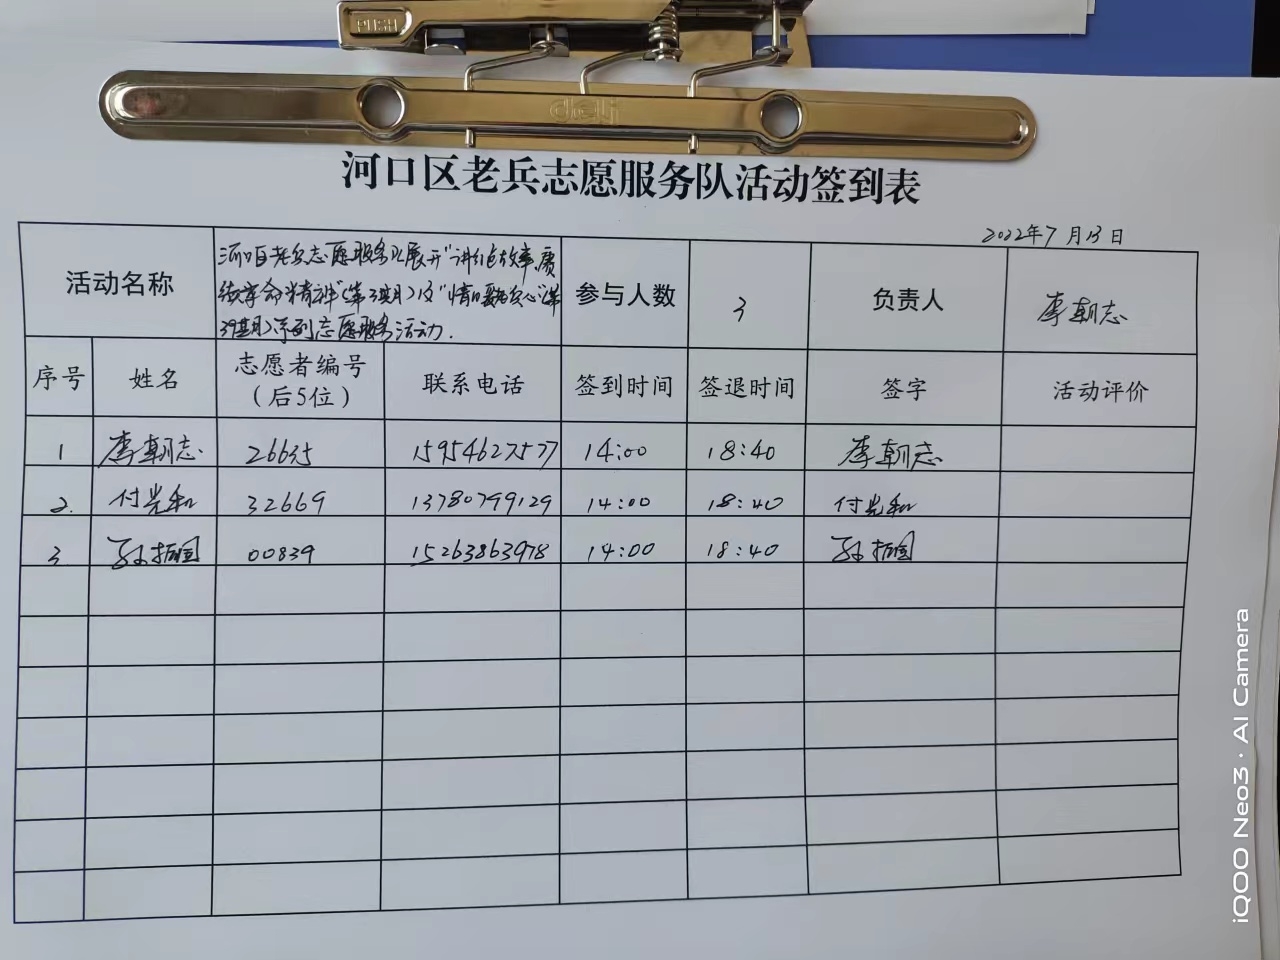 PUSH
deli
河口区老兵志愿服务队活动签到表
2022年7月13日
活动名称
河口区老兵志愿服务队展开"讲红色故事,赓
续革命精神"(第3期)及"情暖老兵心"(第
39期)系列志愿服务活动.
参与人数 3 负责人 李朝志
序号 姓名 志愿者编号 联系电话 签到时间 签退时间 签字 活动评价
(后5位)
1 李朝志 26635 15954627577 14:00 18:40 李朝志
2. 付光和 32669 13780799129 14:00 18:40 付光和
3 孙振国 00839 15263863978 14:00 18:40 孙振国
iQOO Neo3 · AI Camera